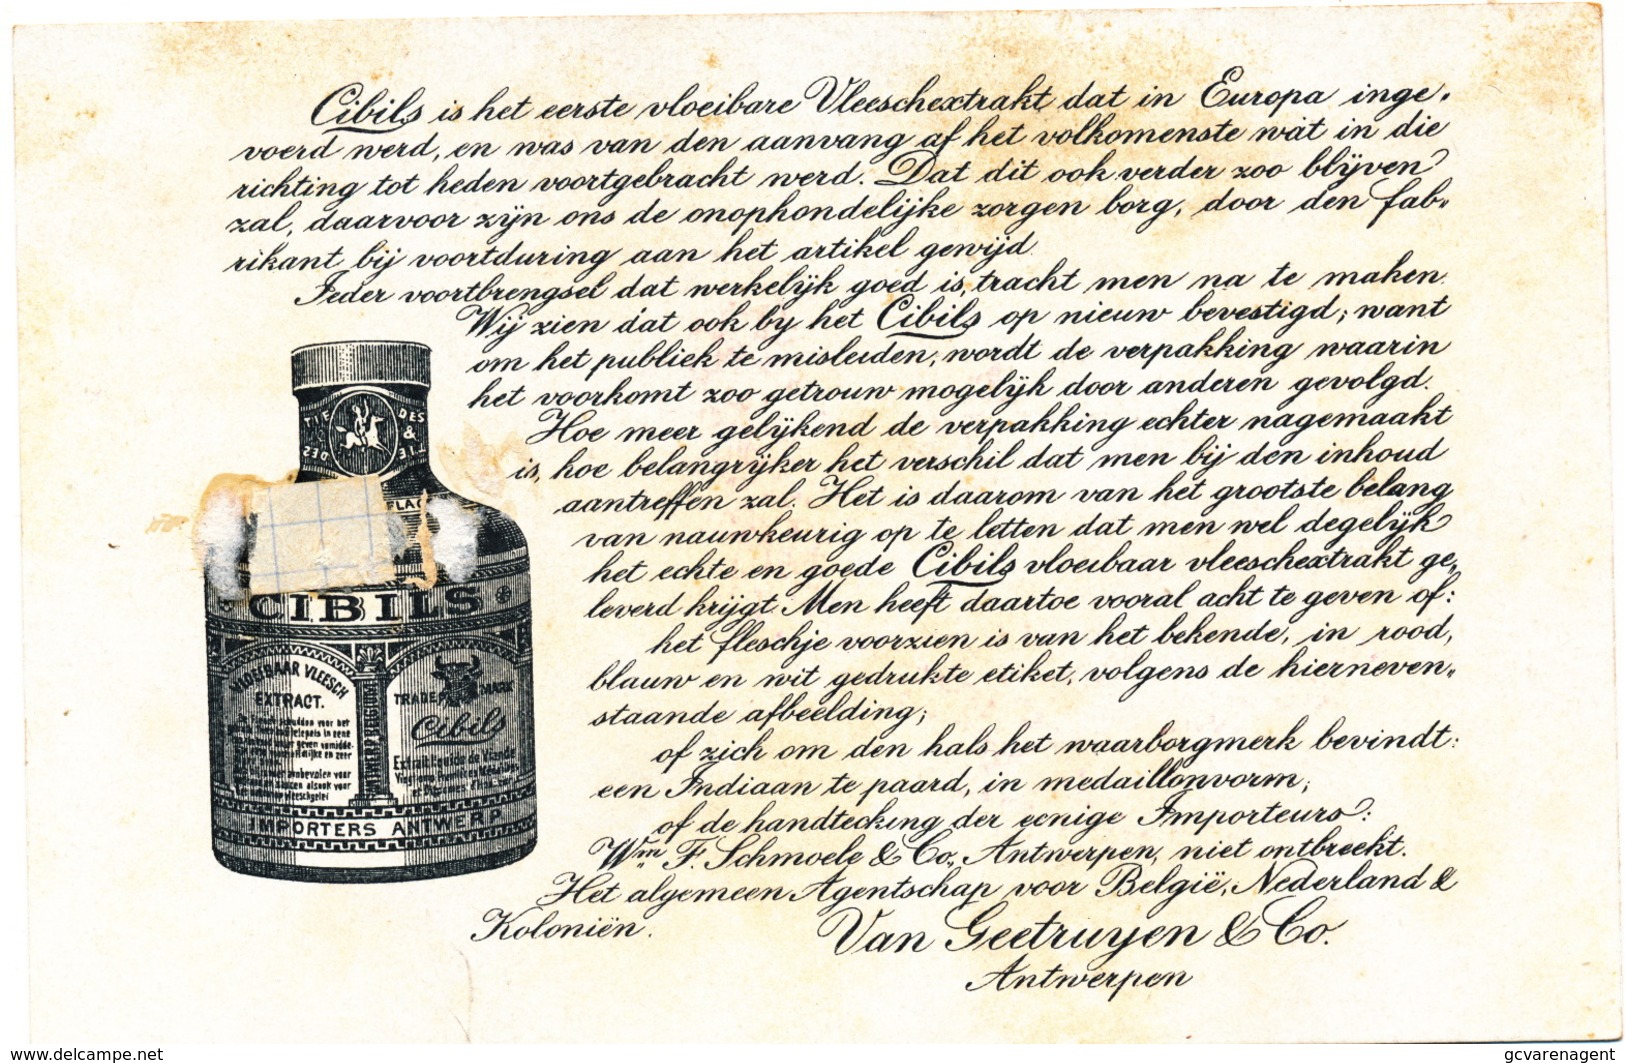 Cibils is het eerste vloeibare Vleeschextrakt dat in Europa inge-
voerd werd, en was van den aanvang af het volkomenste wat in die
richting tot heden voortgebracht werd. Dat dit ook verder zoo blijven
zal, daarvoor zijn ons de onophondelijke zorgen borg, door den fab-
rikant bij voortduring aan het artikel gewijd.
Ieder voortbrengsel dat werkelijk goed is, tracht men na te maken.
Wij zien dat ook by het Cibils op nieuw bevestigd; want
om het publiek te misleiden, wordt de verpakking waarin
het voorkomt zoo getrouw mogelijk door anderen gevolgd.
Hoe meer gelijkend de verpakking echter nagemaakt
is, hoe belangrijker het verschil dat men bij den inhoud
aantreffen zal. Het is daarom van het grootste belang
van nauwkeurig op te letten dat men wel degelijk
het echte en goede Cibils vloeibaar vleeschextrakt ge-
leverd krijgt. Men heeft daartoe vooral acht te geven of:
het fleschje voorzien is van het bekende, in rood,
blauw en wit gedrukte etiket, volgens de hierneven-
staande afbeelding;
of zich om den hals het waarborgmerk bevindt:
een Indiaan te paard, in medaillonvorm;
of de handtecking der eenige Importeurs:
Wm F. Schmoele & Co., Antwerpen, niet ontbreekt.
Het algemeen Agentschap voor België, Nederland &
Koloniën.
Van Geetruyen & Co.
Antwerpen
TIE DES
&
DES TIE
FLAC
CIBILS
VLOEIBAAR VLEESCH
EXTRACT.
TRADE MARK
Cibils
Extrait liquide de Viande
ANTWERP BELGIUM
IMPORTERS ANTWERP
www.delcampe.net
gcvarenagent